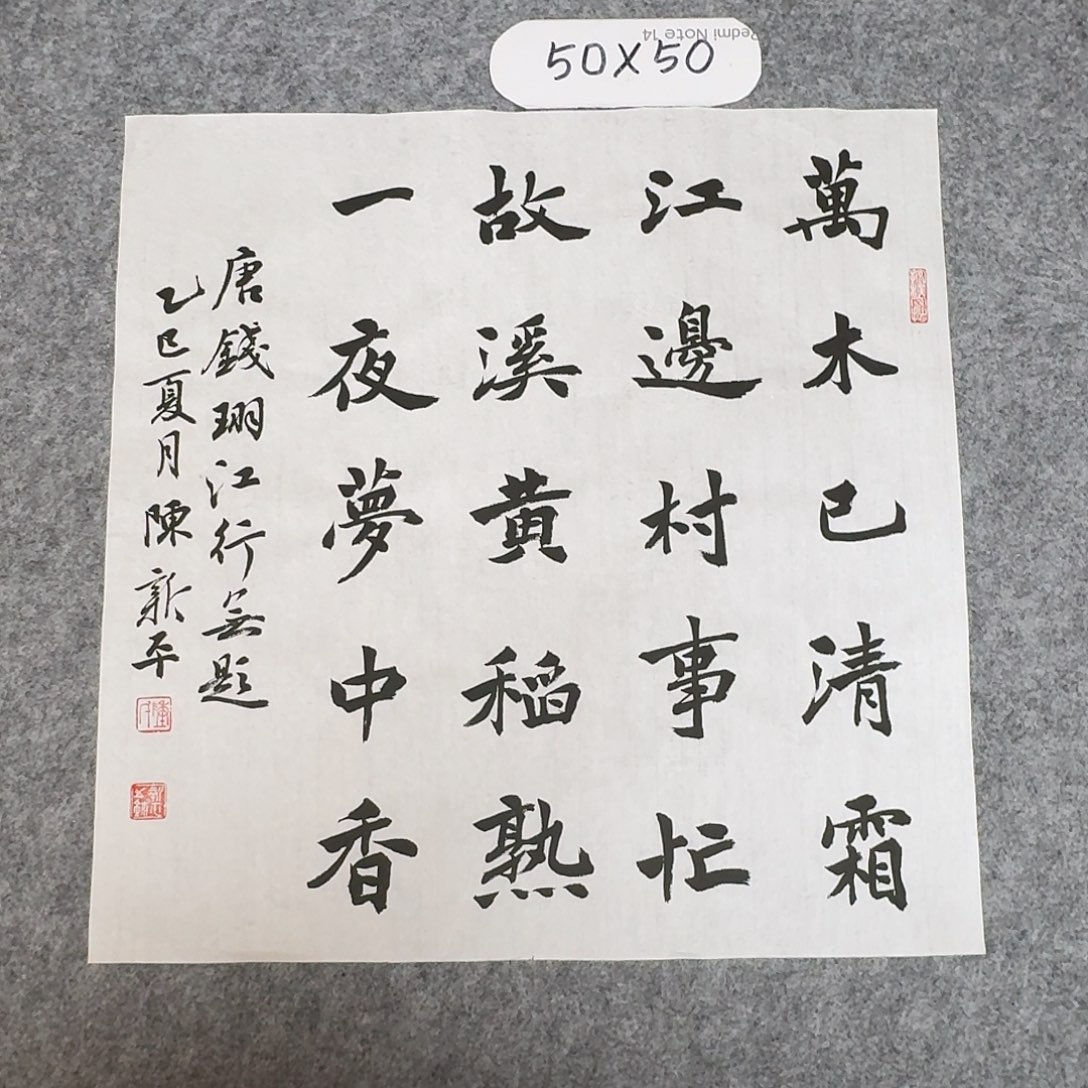 Redmi Note 14
50X50
萬木已清霜
江邊村事忙
故溪黄稻熟
一夜夢中香
唐錢珝江行无題
乙巳夏月陳新平